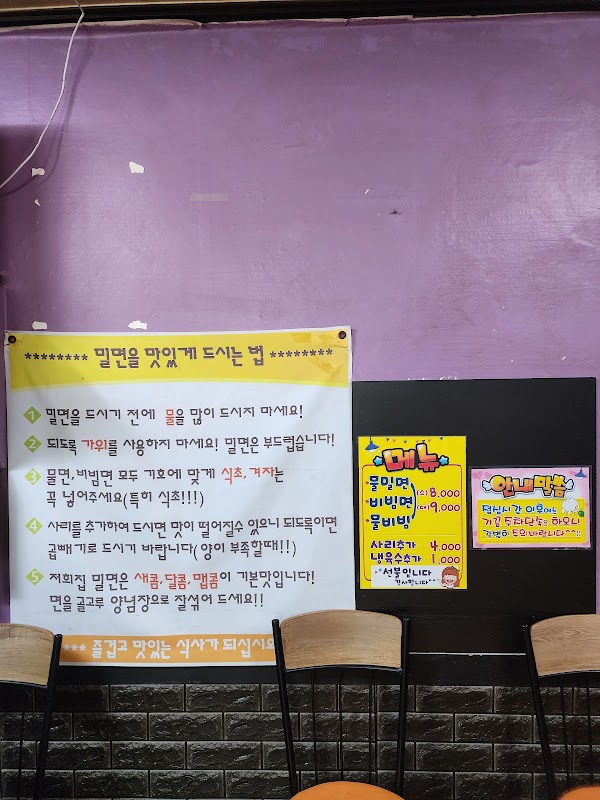 ******** 밀면을 맛있게 드시는 법 ********
1 밀면을 드시기 전에 물을 많이 드시지 마세요!
2 되도록 가위를 사용하지 마세요! 밀면은 부드럽습니다!
3 물면, 비빔면 모두 기호에 맞게 식초, 겨자는
꼭 넣어주세요(특히 식초!!!)
4 사리를 추가하여 드시면 맛이 떨어질수 있으니 되도록이면
곱빼기로 드시기 바랍니다(양이 부족할때!!)
5 저희집 밀면은 새콤, 달콤, 맵콤이 기본맛입니다!
면을 골고루 양념장으로 잘섞어 드세요!!
*** 즐겁고 맛있는 식사가 되십시오
메뉴
물밀면
비빔면
물비빔
(소)8,000
(대)9,000
사리추가 4,000
냉육수추가 1,000
선불입니다
감사합니다
안내말씀
점심시간 이후에는
가끔 주차단속을 하오니
각별히 주의바랍니다^^;;